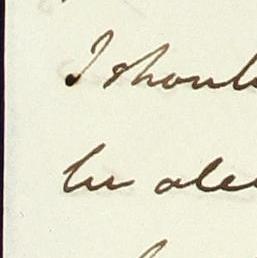 I shoul
be ale